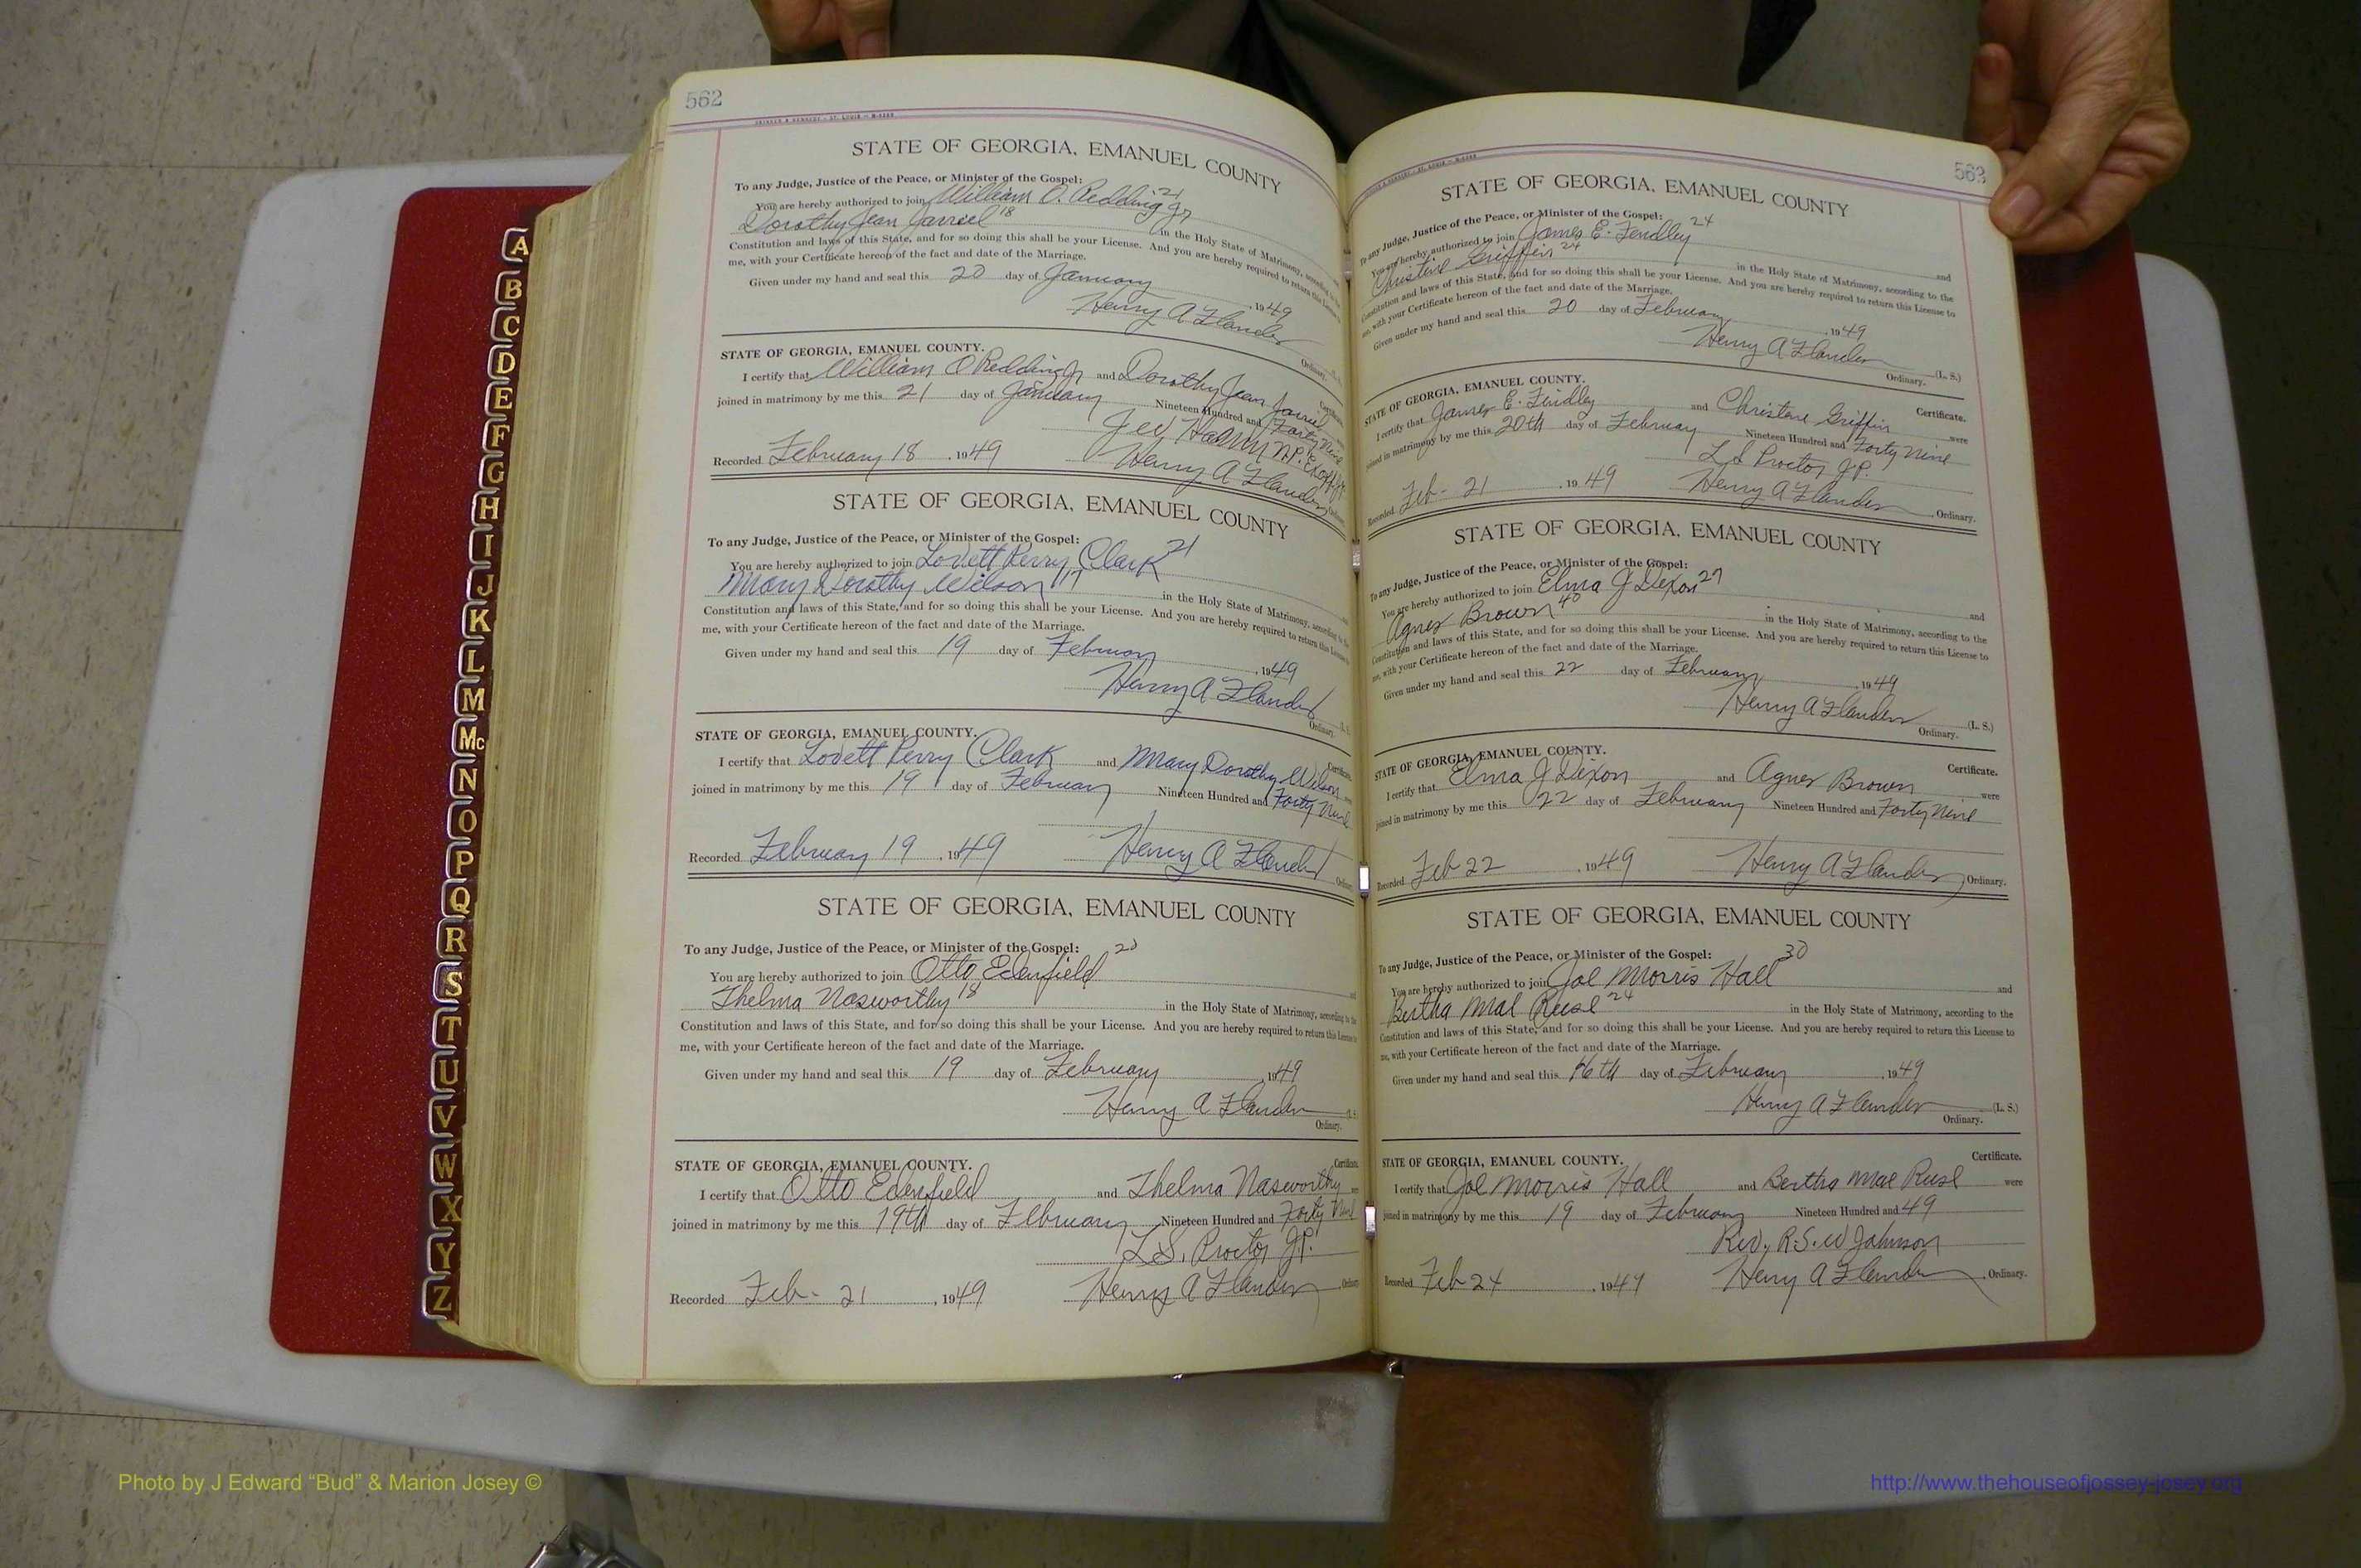 562
STATE OF GEORGIA, EMANUEL COUNTY
To any Judge, Justice of the Peace, or Minister of the Gospel:
You are hereby authorized to join William O. Redding Jr 21
Dorothy Jean Jarriel 18 in the Holy State of Matrimony, according to the
Constitution and laws of this State, and for so doing this shall be your License. And you are hereby required to return this License to
me, with your Certificate hereon of the fact and date of the Marriage.
Given under my hand and seal this 20 day of January, 1949
Henry A Flanders
Ordinary.
STATE OF GEORGIA, EMANUEL COUNTY.
Certificate.
I certify that William O Redding Jr and Dorothy Jean Jarriel
joined in matrimony by me this 21 day of January Nineteen Hundred and Forty Nine
N.P. & Ex Off J.P.
Recorded February 18, 1949 Henry A Flanders Ordinary
STATE OF GEORGIA, EMANUEL COUNTY
To any Judge, Justice of the Peace, or Minister of the Gospel:
You are hereby authorized to join Lovett Perry Clark 21
Mary Dorothy Wilson 17 in the Holy State of Matrimony, according to the
Constitution and laws of this State, and for so doing this shall be your License. And you are hereby required to return this License
me, with your Certificate hereon of the fact and date of the Marriage.
Given under my hand and seal this 19 day of February, 1949
Henry A Flanders
Ordinary.
STATE OF GEORGIA, EMANUEL COUNTY.
Certificate.
I certify that Lovett Perry Clark and Mary Dorothy Wilson
joined in matrimony by me this 19 day of February Nineteen Hundred and Forty Nine
Recorded February 19, 1949 Henry A Flanders Ordinary
STATE OF GEORGIA, EMANUEL COUNTY
To any Judge, Justice of the Peace, or Minister of the Gospel:
You are hereby authorized to join Otto Edenfield and
Thelma Nasworthy 18 in the Holy State of Matrimony, according to the
Constitution and laws of this State, and for so doing this shall be your License. And you are hereby required to return this License to
me, with your Certificate hereon of the fact and date of the Marriage.
Given under my hand and seal this 19 day of February, 1949
Henry A Flanders
Ordinary.
STATE OF GEORGIA, EMANUEL COUNTY.
Certificate.
I certify that Otto Edenfield and Thelma Nasworthy
joined in matrimony by me this 19th day of February Nineteen Hundred and Forty Nine
L.S. Proctor J.P.
Recorded Feb - 21, 1949 Henry A Flanders Ordinary
563
STATE OF GEORGIA, EMANUEL COUNTY
To any Judge, Justice of the Peace, or Minister of the Gospel:
You are hereby authorized to join James E. Findley 24 and
Christine Griffin 24 in the Holy State of Matrimony, according to the
Constitution and laws of this State, and for so doing this shall be your License. And you are hereby required to return this License to
me, with your Certificate hereon of the fact and date of the Marriage.
Given under my hand and seal this 20 day of February, 1949
Henry A Flanders (L. S.)
Ordinary.
STATE OF GEORGIA, EMANUEL COUNTY.
Certificate.
I certify that James E. Findley and Christene Griffin were
joined in matrimony by me this 20th day of February Nineteen Hundred and Forty Nine
L S Proctor J.P.
Recorded Feb - 21, 1949 Henry A Flanders, Ordinary.
STATE OF GEORGIA, EMANUEL COUNTY
To any Judge, Justice of the Peace, or Minister of the Gospel:
You are hereby authorized to join Elma J Dixon and
Agnes Brown 40 in the Holy State of Matrimony, according to the
Constitution and laws of this State, and for so doing this shall be your License. And you are hereby required to return this License to
me, with your Certificate hereon of the fact and date of the Marriage.
Given under my hand and seal this 22 day of February, 1949
Henry A Flanders (L. S.)
Ordinary.
STATE OF GEORGIA, EMANUEL COUNTY.
Certificate.
I certify that Elma J Dixon and Agnes Brown were
joined in matrimony by me this 22 day of February Nineteen Hundred and Forty Nine
Recorded Feb 22, 1949 Henry A Flanders, Ordinary.
STATE OF GEORGIA, EMANUEL COUNTY
To any Judge, Justice of the Peace, or Minister of the Gospel:
You are hereby authorized to join Joe Morris Hall 30 and
Bertha Mae Reese 24 in the Holy State of Matrimony, according to the
Constitution and laws of this State, and for so doing this shall be your License. And you are hereby required to return this License to
me, with your Certificate hereon of the fact and date of the Marriage.
Given under my hand and seal this 16th day of February, 1949
Henry A Flanders (L. S.)
Ordinary.
STATE OF GEORGIA, EMANUEL COUNTY.
Certificate.
I certify that Joe Morris Hall and Bertha Mae Reese were
joined in matrimony by me this 19 day of February Nineteen Hundred and 49
Rev. R.S.W Johnson
Recorded Feb 24, 1949 Henry A Flanders, Ordinary.
A
B
C
D
E
F
G
H
I
J
K
L
M
Mc
N
O
P
Q
R
S
T
U
V
W
X
Y
Z
Photo by J Edward “Bud” & Marion Josey ©
http://www.thehouseofjossey-josey.org